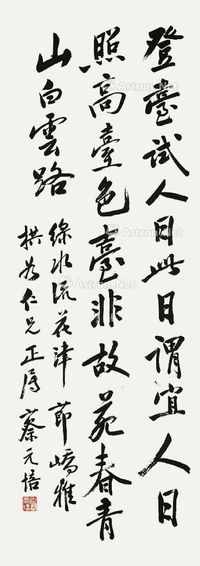 登臺試人日此日謂宜人日
照高臺色臺非故苑春青
山白雲路
綠水流花津 節嶠雅
仁兄正 蔡元培
Artron.Net